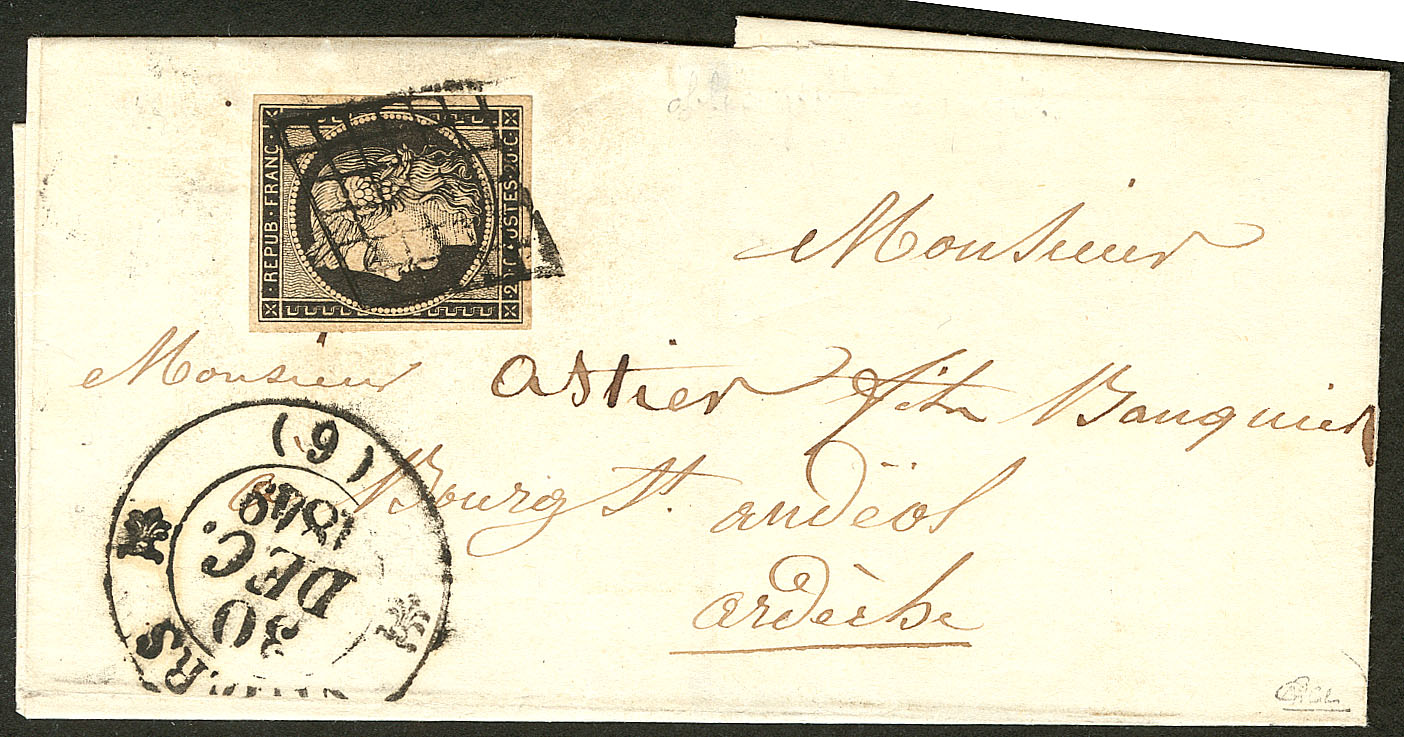 REPUB · FRANC ·
20 · C · POSTES · 20 · C
Monsieur
Monsieur astier fils Banquier
a Bourg St. andëol
ardèche
(9)
1849
DEC.
30
RS